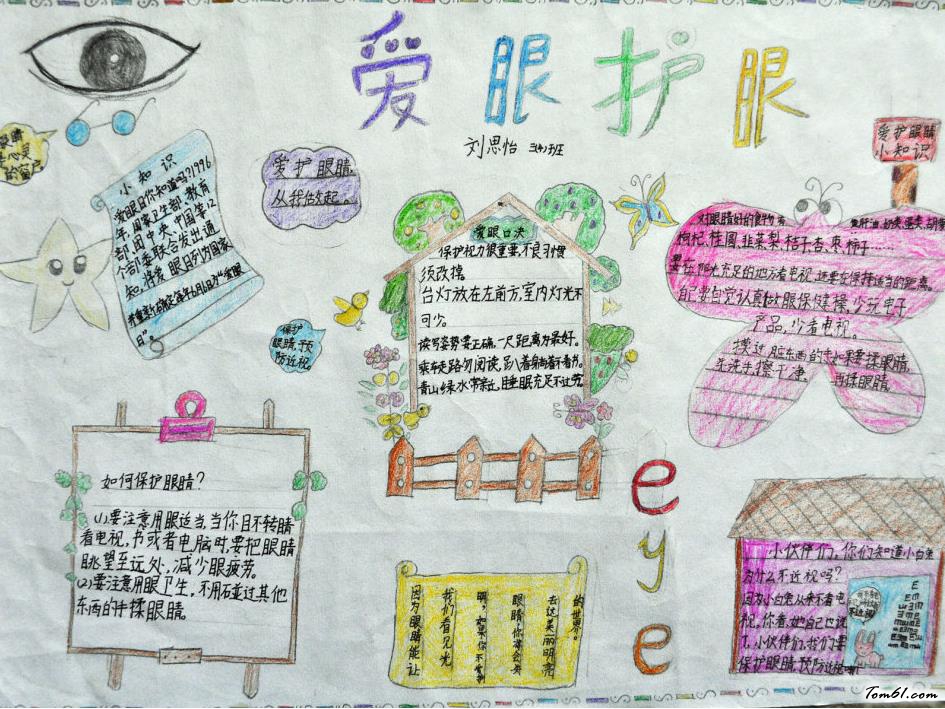 爱眼护眼
刘思怡 三(4)班
爱护眼睛
小知识
小知识
爱眼日你知道吗?1996
年,国家卫生部,教育
部,团中央,中国等12
个部委联合发出通
知,将爱眼日列为国家
日"。
爱护眼睛
从我做起。
保护
眼睛预
防近视。
爱眼口决
保护视力很重要,不良习惯
须改掉。
台灯放在左前方,室内灯光不
可少。
读写姿势要正确,一尺距离为最好。
乘车走路勿阅读,趴着躺着不看书。
青山绿水常亲近,睡眠充足不过劳。
对眼睛好的食物有
枸杞,桂圆,韭菜梨,桔子杏,枣,柿子……
要在阳光充足的地方看电视,还要在保持适当的距离。
自己要自觉认真做眼保健操,少玩电子
产品,少看电视。
先洗手,擦干净,再揉眼睛
如何保护眼睛?
(1)要注意用眼适当,当你目不转睛
看电视,书或者电脑时,要把眼睛
眺望至远处,减少眼疲劳。
(2)要注意用眼卫生,不用碰过其他
东西的手揉眼睛。
的世界。
去这美丽明亮
眼睛,你将会失
明,如果你不爱护
我们看见光
因为眼睛能让
eye
小伙伴们,你们知道小白兔
为什么不近视吗?
因为小白兔从来不看电
视。你看,她自己也说
了,小伙伴们,我们要
保护眼睛,预防近视啊!
Tom61.com